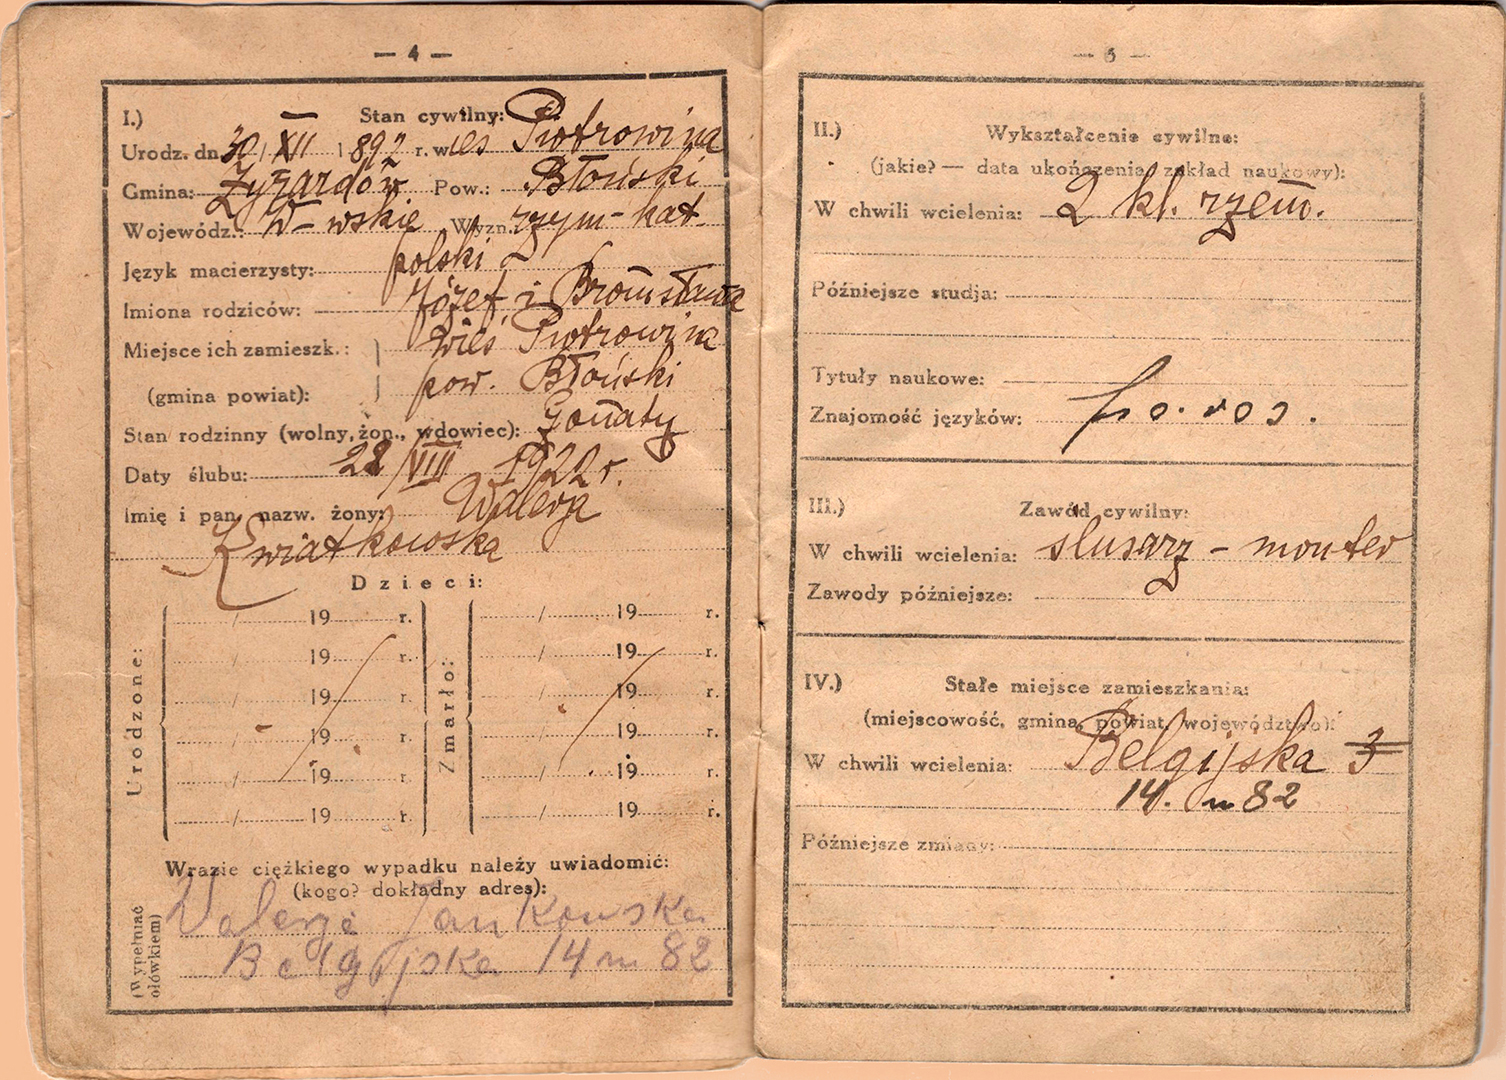 — 4 —
I.) Stan cywilny:
Urodz. dn. 30 / XII 1892 r. wieś Piotrowina
Gmina: Żyrardów Pow.: Błoński
Wojewódz.: W-wskie Wyzn. rzym-kat
Język macierzysty: polski
Imiona rodziców: Józef i Bronisława
Miejsce ich zamieszk.: wieś Piotrowina
(gmina powiat): pow. Błoński
Stan rodzinny (wolny, żon., wdowiec): żonaty
Daty ślubu: 28/VIII 1922 r.
Imię i pan. nazw. żony: Walerja
Kwiatkowska
Dzieci:
Urodzone:
/ 19 r.
/ 19 r.
/ 19 r.
/ 19 r.
/ 19 r.
/ 19 r.
Zmarło:
/ 19 r.
/ 19 r.
/ 19 r.
/ 19 r.
/ 19 r.
/ 19 r.
Wrazie ciężkiego wypadku należy uwiadomić:
(kogo? dokładny adres):
(Wypełniać ołówkiem)
Walerja Jankowska
Belgijska 14 m 82
— 5 —
II.) Wykształcenie cywilne:
(jakie? — data ukończenia, zakład naukowy):
W chwili wcielenia: 2 kl. rzem.
Późniejsze studja:
Tytuły naukowe:
Znajomość języków:
III.) Zawód cywilny:
W chwili wcielenia: ślusarz - monter
Zawody późniejsze:
IV.) Stałe miejsce zamieszkania:
(miejscowość, gmina, powiat, województwo):
W chwili wcielenia: Belgijska 3
14. m 82
Późniejsze zmiany: